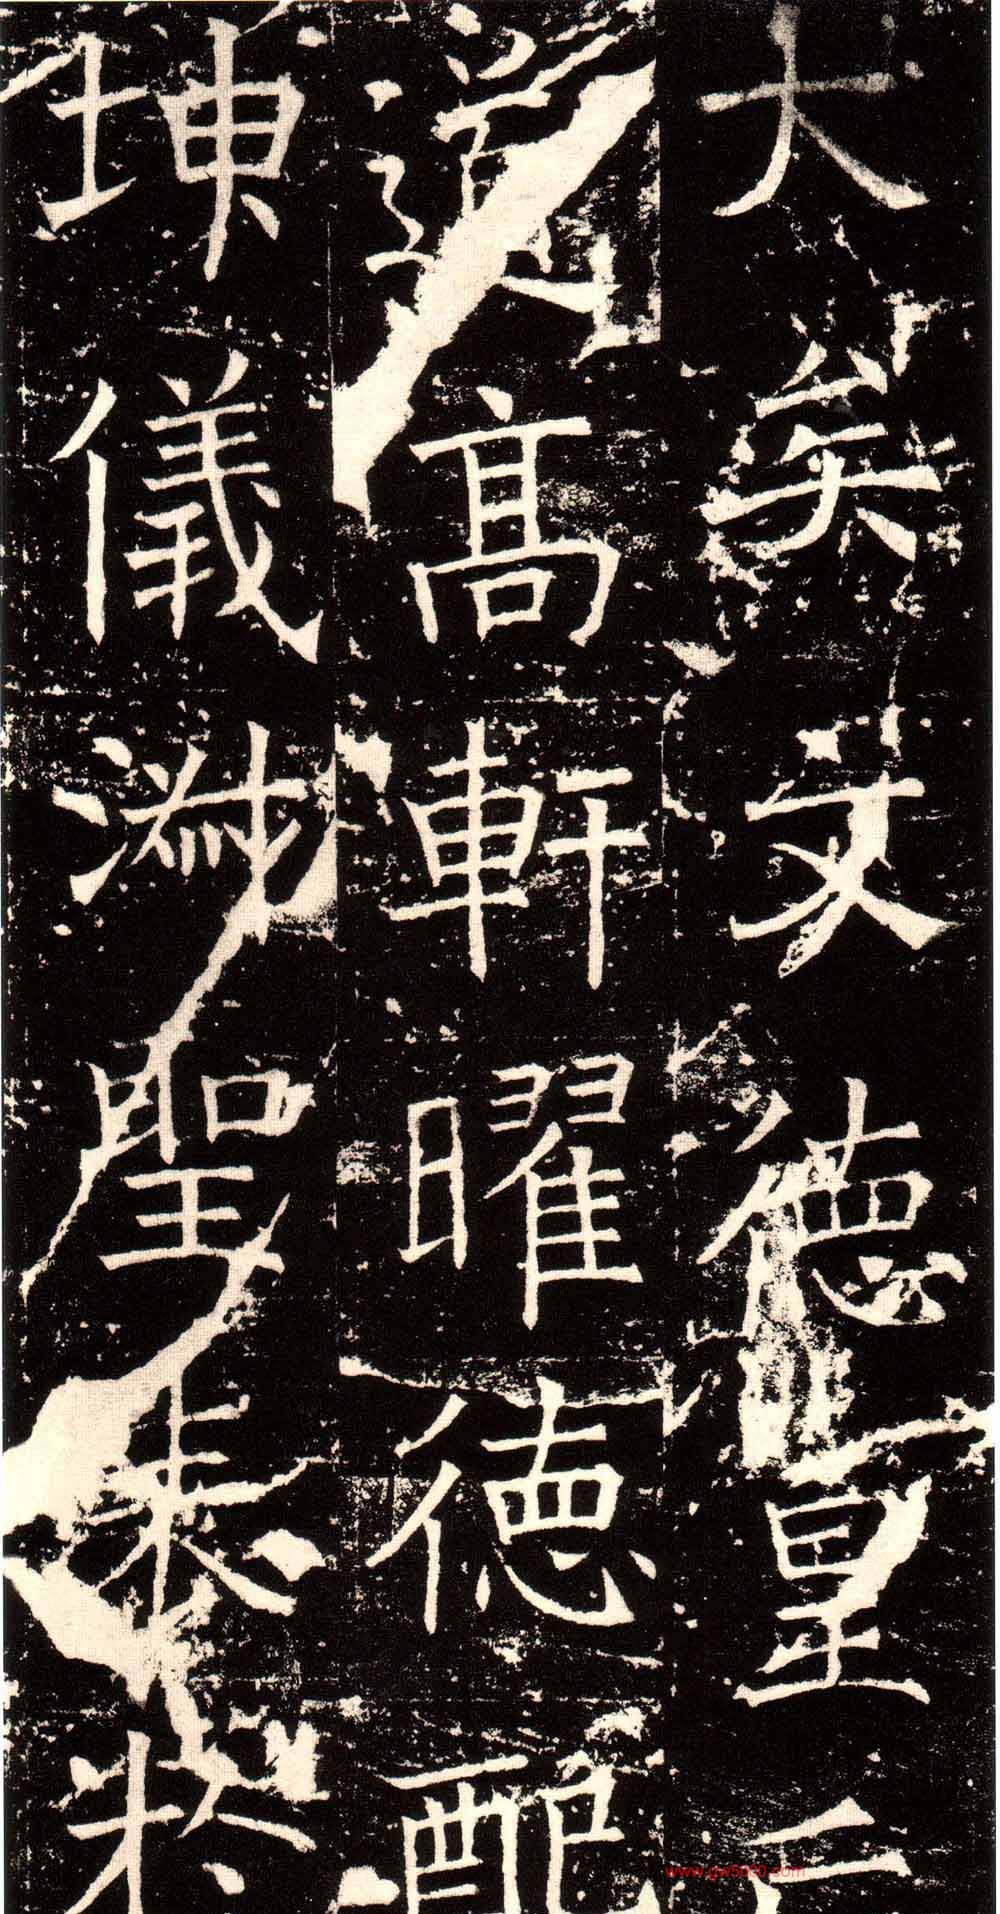 大矣文德皇后
道高軒曜德配
坤儀淑聖表於